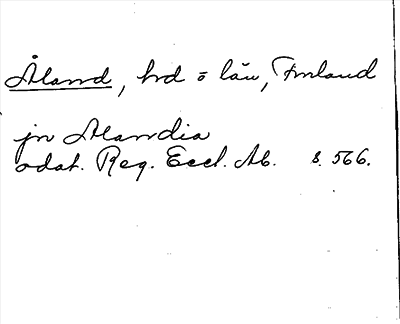 Åland, hd o län, Finland
jn Alandia
odat. Reg. Eccl. Ab. s. 566.